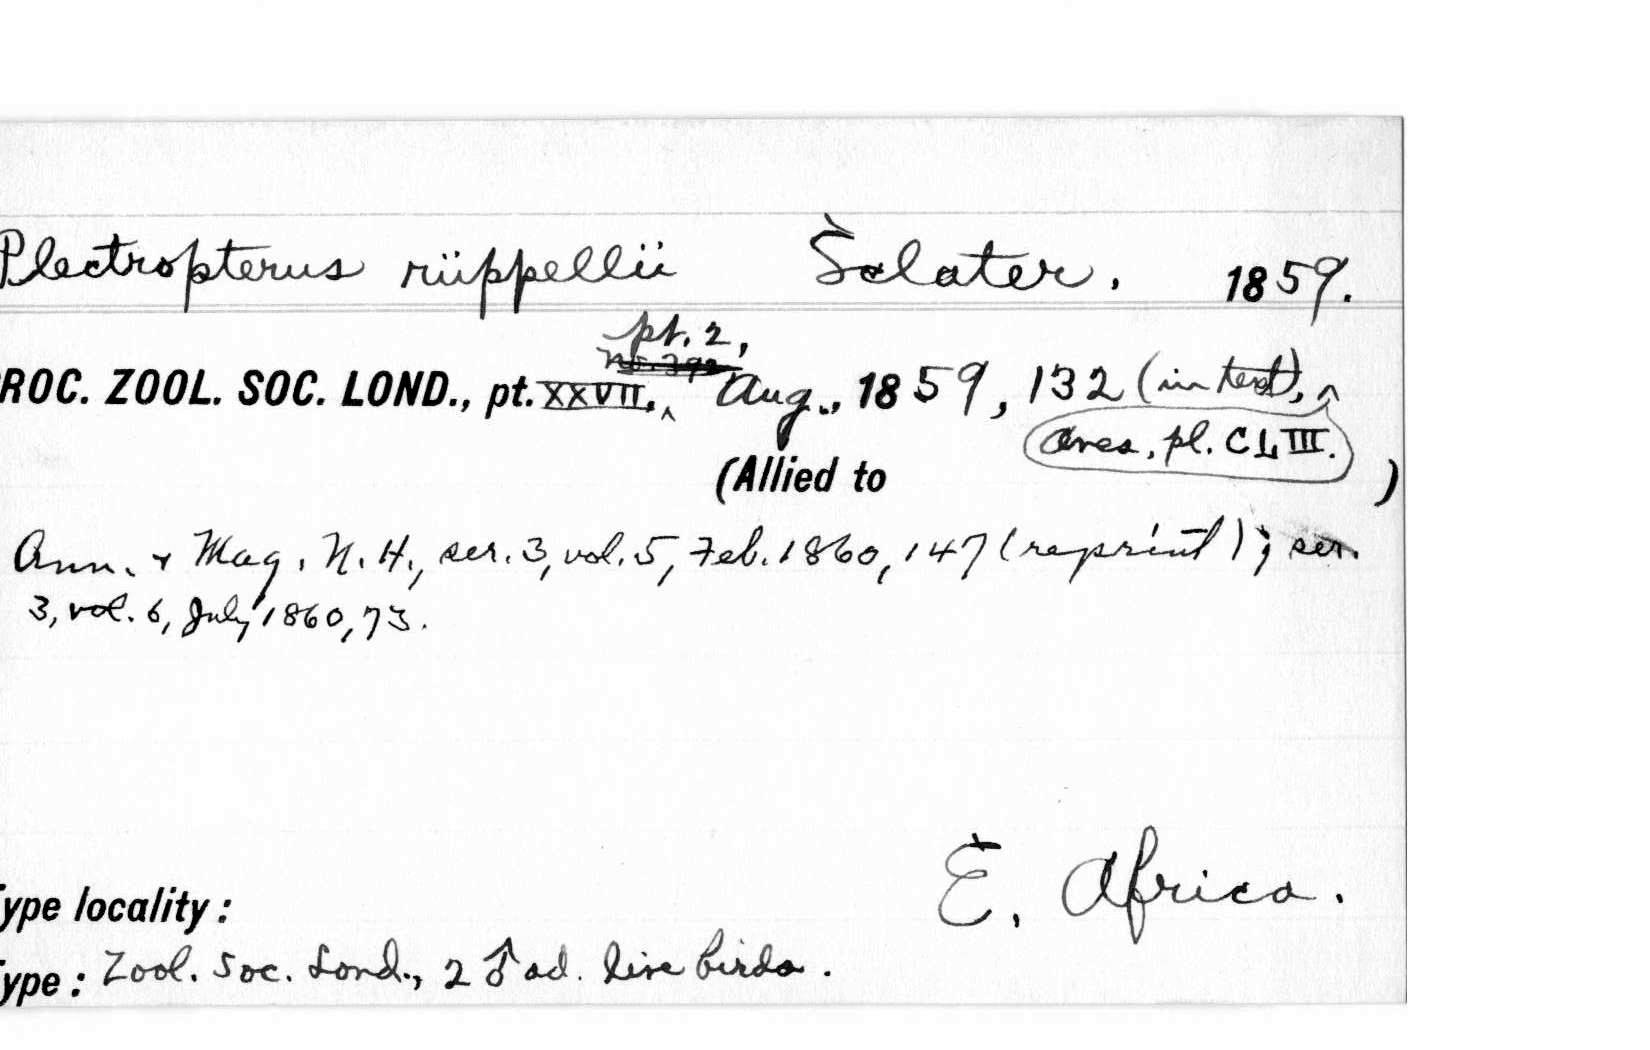 Plectropterus rüppellii Sclater. 1859.
pt. 2,
ROC. ZOOL. SOC. LOND., pt. XXVII, Aug., 1859, 132 (in text),
Aves, pl. CLIII.
(Allied to )
Ann. & Mag. N. H., ser. 3, vol. 5, Feb. 1860, 147 (reprint); ser.
3, vol. 6, July 1860, 73.
E. Africa.
ype locality:
ype: Zool. Soc. Lond., 2 ♂ ad. live birds.